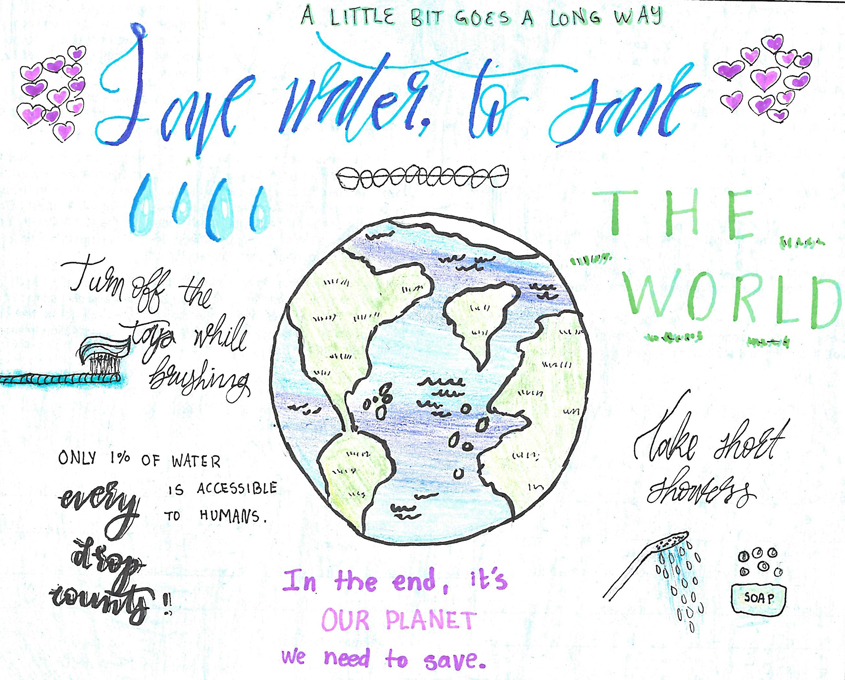 A LITTLE BIT GOES A LONG WAY
Love water, to save
THE
WORLD
Turn off the
taps while
brushing
ONLY 1% OF WATER
IS ACCESSIBLE
TO HUMANS.
every
drop
counts!!
Take short
showers
SOAP
In the end, it's
OUR PLANET
we need to save.